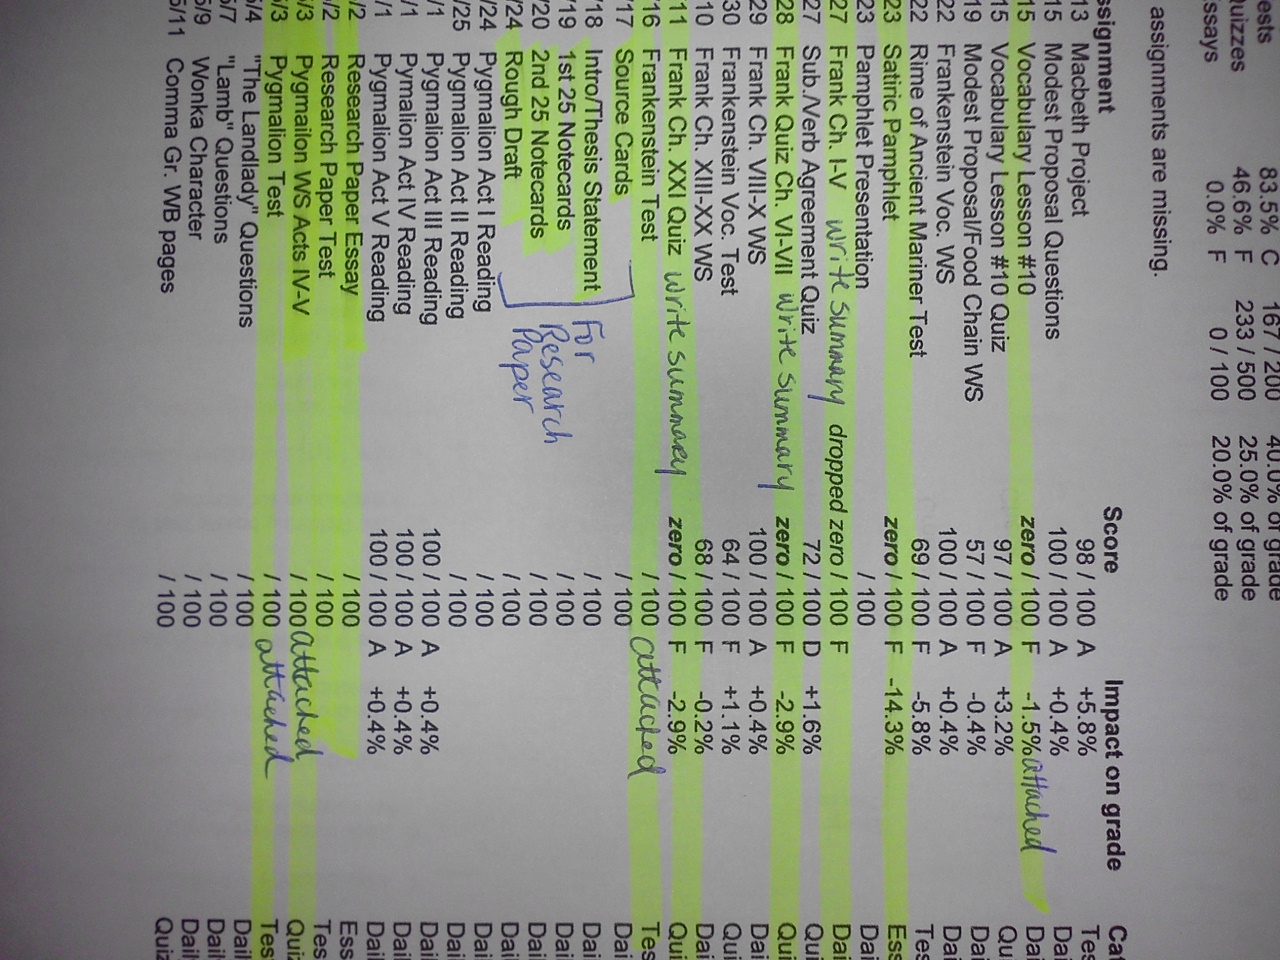 ests 83.5% C 167 / 200 40.0% of grade
uizzes 46.6% F 233 / 500 25.0% of grade
ssays 0.0% F 0 / 100 20.0% of grade
assignments are missing.
ssignment Score Impact on grade Ca
13 Macbeth Project 98 / 100 A +5.8% Tes
15 Modest Proposal Questions 100 / 100 A +0.4% Dai
15 Vocabulary Lesson #10 zero / 100 F -1.5% attached Dai
15 Vocabulary Lesson #10 Quiz 97 / 100 A +3.2% Qu
19 Modest Proposal/Food Chain WS 57 / 100 F -0.4% Dai
22 Frankenstein Voc. WS 100 / 100 A +0.4% Dai
22 Rime of Ancient Mariner Test 69 / 100 F -5.8% Tes
23 Satiric Pamphlet zero / 100 F -14.3% Ess
23 Pamphlet Presentation / 100 Dai
27 Frank Ch. I-V write summary dropped zero / 100 F Dai
27 Sub./Verb Agreement Quiz 72 / 100 D +1.6% Qui
28 Frank Quiz Ch. VI-VII write summary zero / 100 F -2.9% Qui
29 Frank Ch. VIII-X WS 100 / 100 A +0.4% Dai
30 Frankenstein Voc. Test 64 / 100 F +1.1% Qui
10 Frank Ch. XIII-XX WS 68 / 100 F -0.2% Dai
11 Frank Ch. XXI Quiz write summary zero / 100 F -2.9% Qui
16 Frankenstein Test / 100 attached Tes
/17 Source Cards / 100 Dai
/18 Intro/Thesis Statement For / 100 Dai
/19 1st 25 Notecards Research / 100 Dai
/20 2nd 25 Notecards Paper / 100 Dai
/24 Rough Draft / 100 Dai
/24 Pygmalion Act I Reading / 100 Dai
/25 Pygmalion Act II Reading / 100 Dai
/1 Pygmalion Act III Reading 100 / 100 A +0.4% Dail
/1 Pymalion Act IV Reading 100 / 100 A +0.4% Dail
/1 Pygmalion Act V Reading 100 / 100 A +0.4% Dail
/2 Research Paper Essay / 100 Ess
/2 Research Paper Test / 100 Tes
5/3 Pygmailon WS Acts IV-V / 100 attached Quiz
5/3 Pygmalion Test / 100 attached Test
5/4 "The Landlady" Questions / 100 Dail
5/7 "Lamb" Questions / 100 Dail
5/9 Wonka Character / 100 Dail
5/11 Comma Gr. WB pages / 100 Quiz